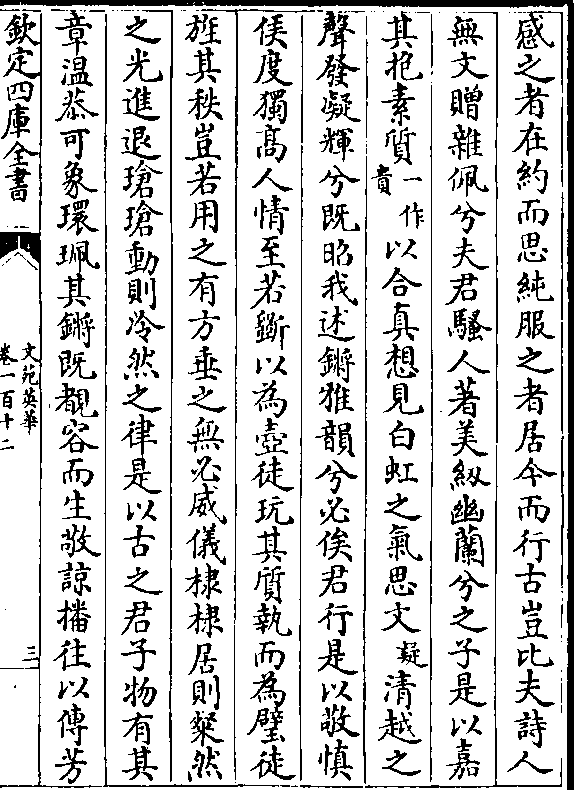 感之者在約而思純服之者居今而行古豈比夫詩人
無文贈雜佩兮夫君騷人著美紉幽蘭兮之子是以嘉
其抱素質一作賁以合真想見白虹之氣思文疑清越之
聲發凝輝兮既昭我述鏘雅韻兮必俟君行是以敬慎
侯度獨高人情至若斵以為壺徒玩其質執而為璧徒
旌其秩豈若用之有方垂之無必威儀棣棣居則粲然
之光進退瑲瑲動則冷然之律是以古之君子物有其
章温恭可象環珮其鏘既覩容而生敬諒播往以傳芳
欽定四庫全書
文苑英華
卷一百十二
三